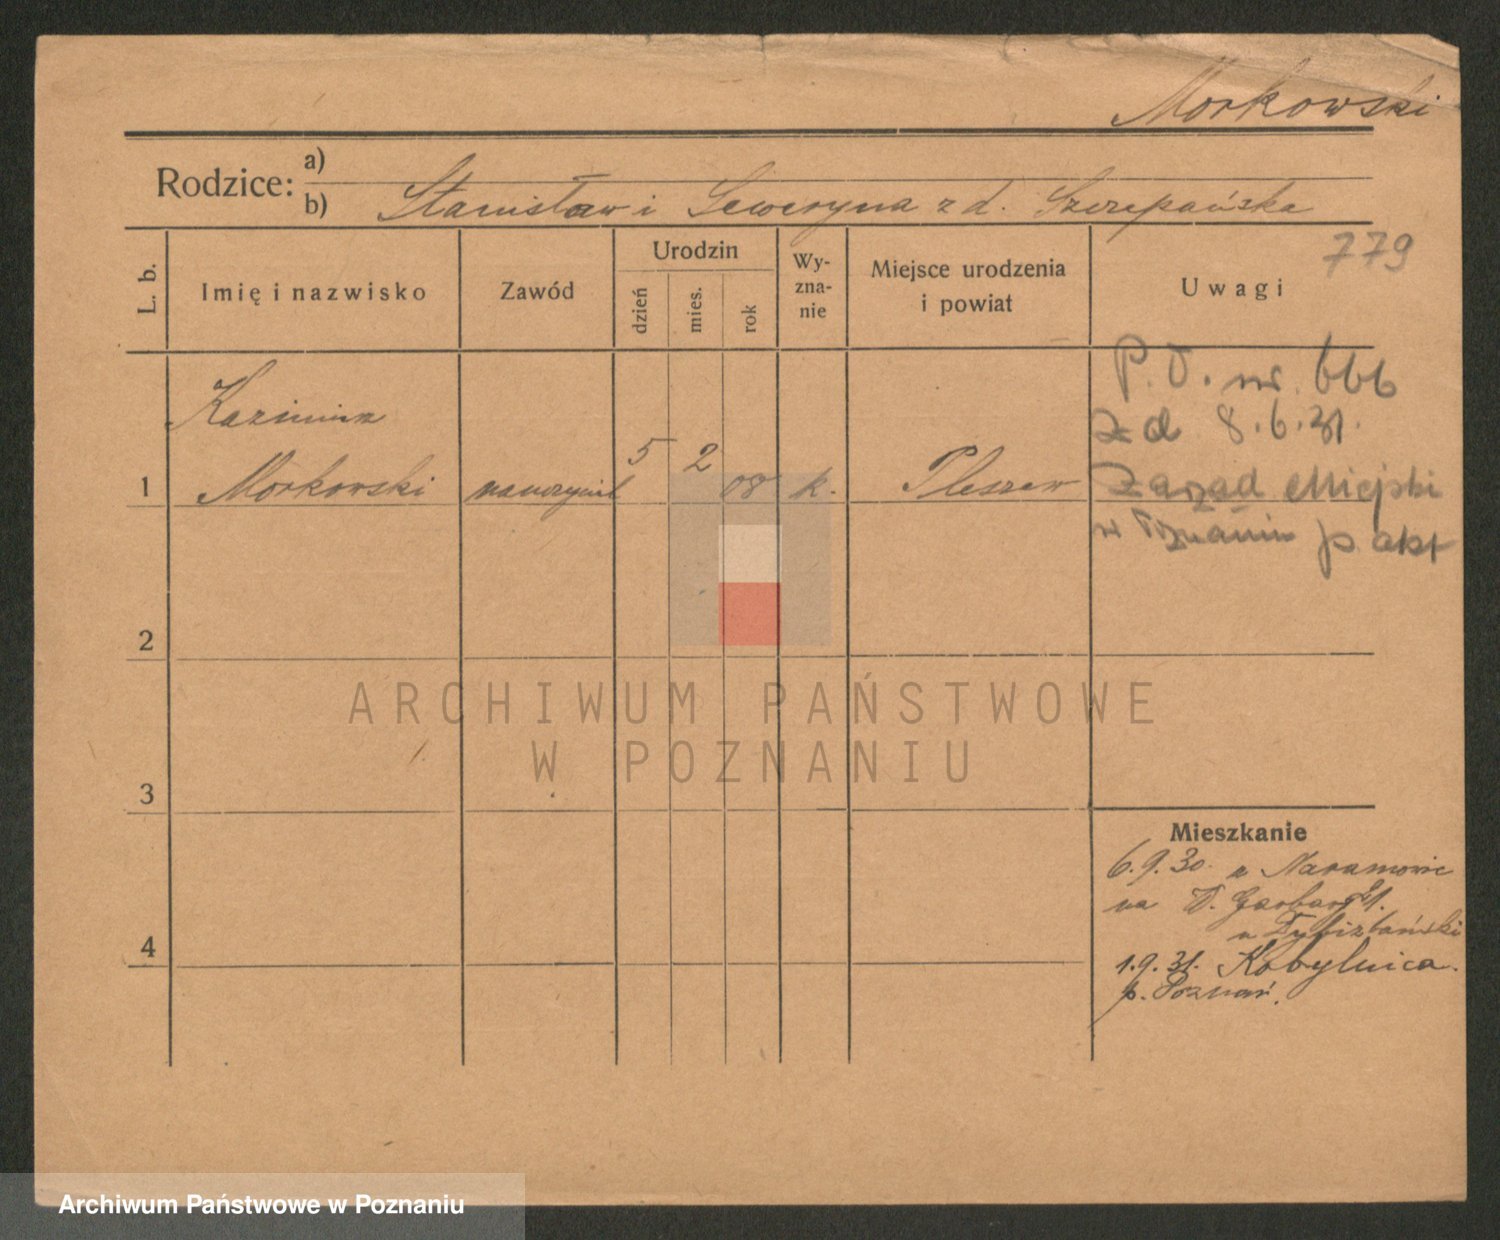 Morkowski
Rodzice:
a)
b) Stanisław i Seweryna z d. Szczepańska
779
L. b.
Imię i nazwisko
Zawód
Urodzin
dzień
mies.
rok
Wy-
zna-
nie
Miejsce urodzenia
i powiat
Uwagi
1
Kazimierz
Morkowski
nauczyciel
5
2
08
k.
Pleszew
P. D. nr. 666
z d 8.6.31.
Zarząd Miejski
w Poznaniu p. akt
2
3
4
Mieszkanie
6.9.30. z Naramowic
na D. Garbary
u
1.9.31. Kobylnica.
p. Poznań.
ARCHIWUM PAŃSTWOWE
W POZNANIU
Archiwum Państwowe w Poznaniu